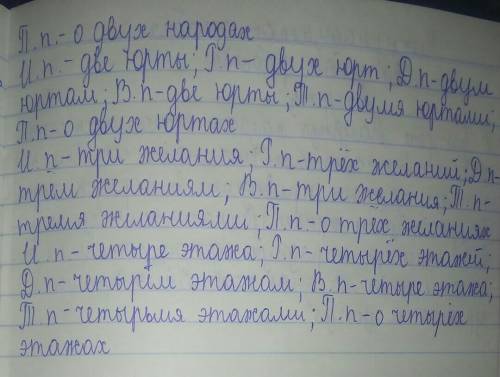 П.п.- о двух народах
И.п.- две юрты; Р.п- двух юрт; Д.п-двум
юртам; В.п-две юрты; Т.п-двумя юртами;
П.п-о двух юртах
И.п-три желания; Р.п-трёх желаний; Д.п-
трём желаниям; В.п-три желания; Т.п-
тремя желаниями; П.п-о трёх желаниях
И.п-четыре этажа; Р.п-четырёх этажей;
Д.п-четырём этажам; В.п-четыре этажа;
Т п-четырьмя этажами; П.п-о четырёх
этажах